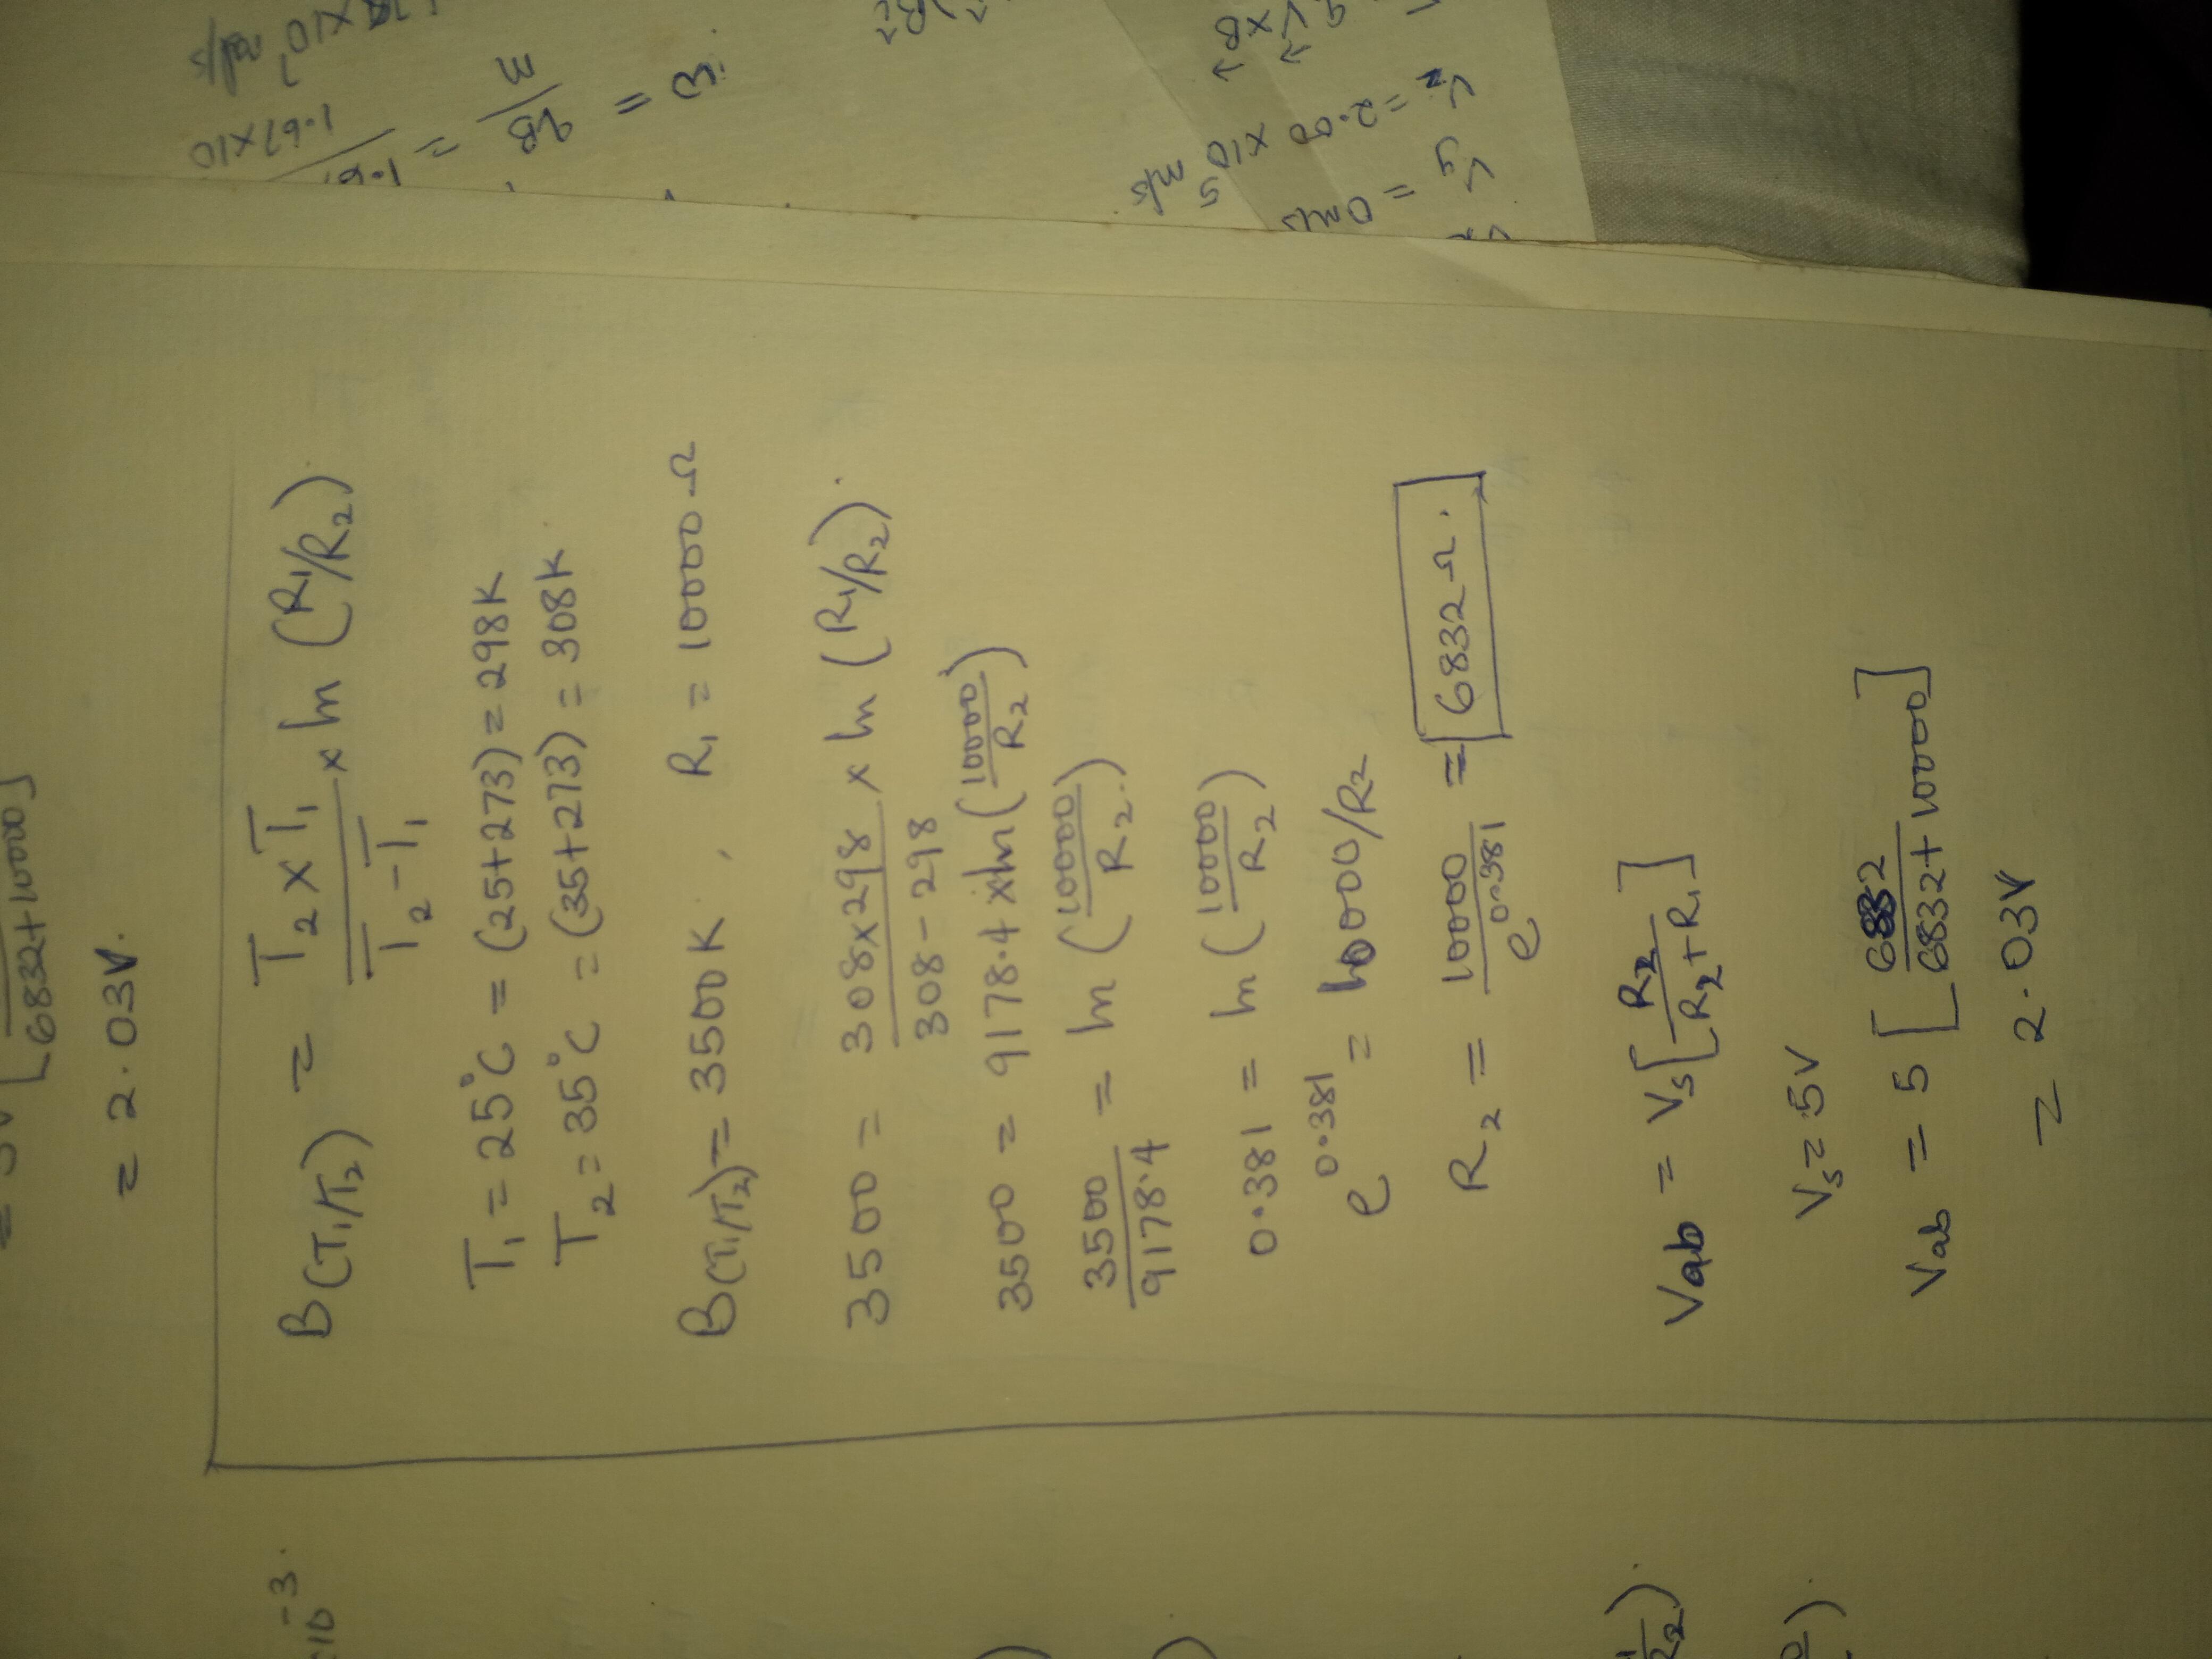 [6832+10000]
= 2.03V.
B(T₁/T₂) = T₂ x T₁ / T₂ - T₁ x ln (R₁/R₂)
T₁ = 25°C = (25+273) = 298K
T₂ = 35°C = (35+273) = 308K
B(T₁/T₂) = 3500K , R₁ = 10000 Ω
3500 = 308x298 / 308-298 x ln (R₁/R₂).
3500 = 9178.4 x ln (10000/R₂)
3500/9178.4 = ln (10000/R₂.)
0.381 = ln (10000/R₂)
e^0.381 = 10000/R₂
R₂ = 10000/e^0.381 = 6832 Ω.
Vab = Vs [R₂/R₂+R₁]
Vs = 5V
Vab = 5 [6832/6832+10000]
= 2.03V
ω = qB/m =
1.67x10
V x B
= 2.00 x 10⁵ m/s
= 0 m/s